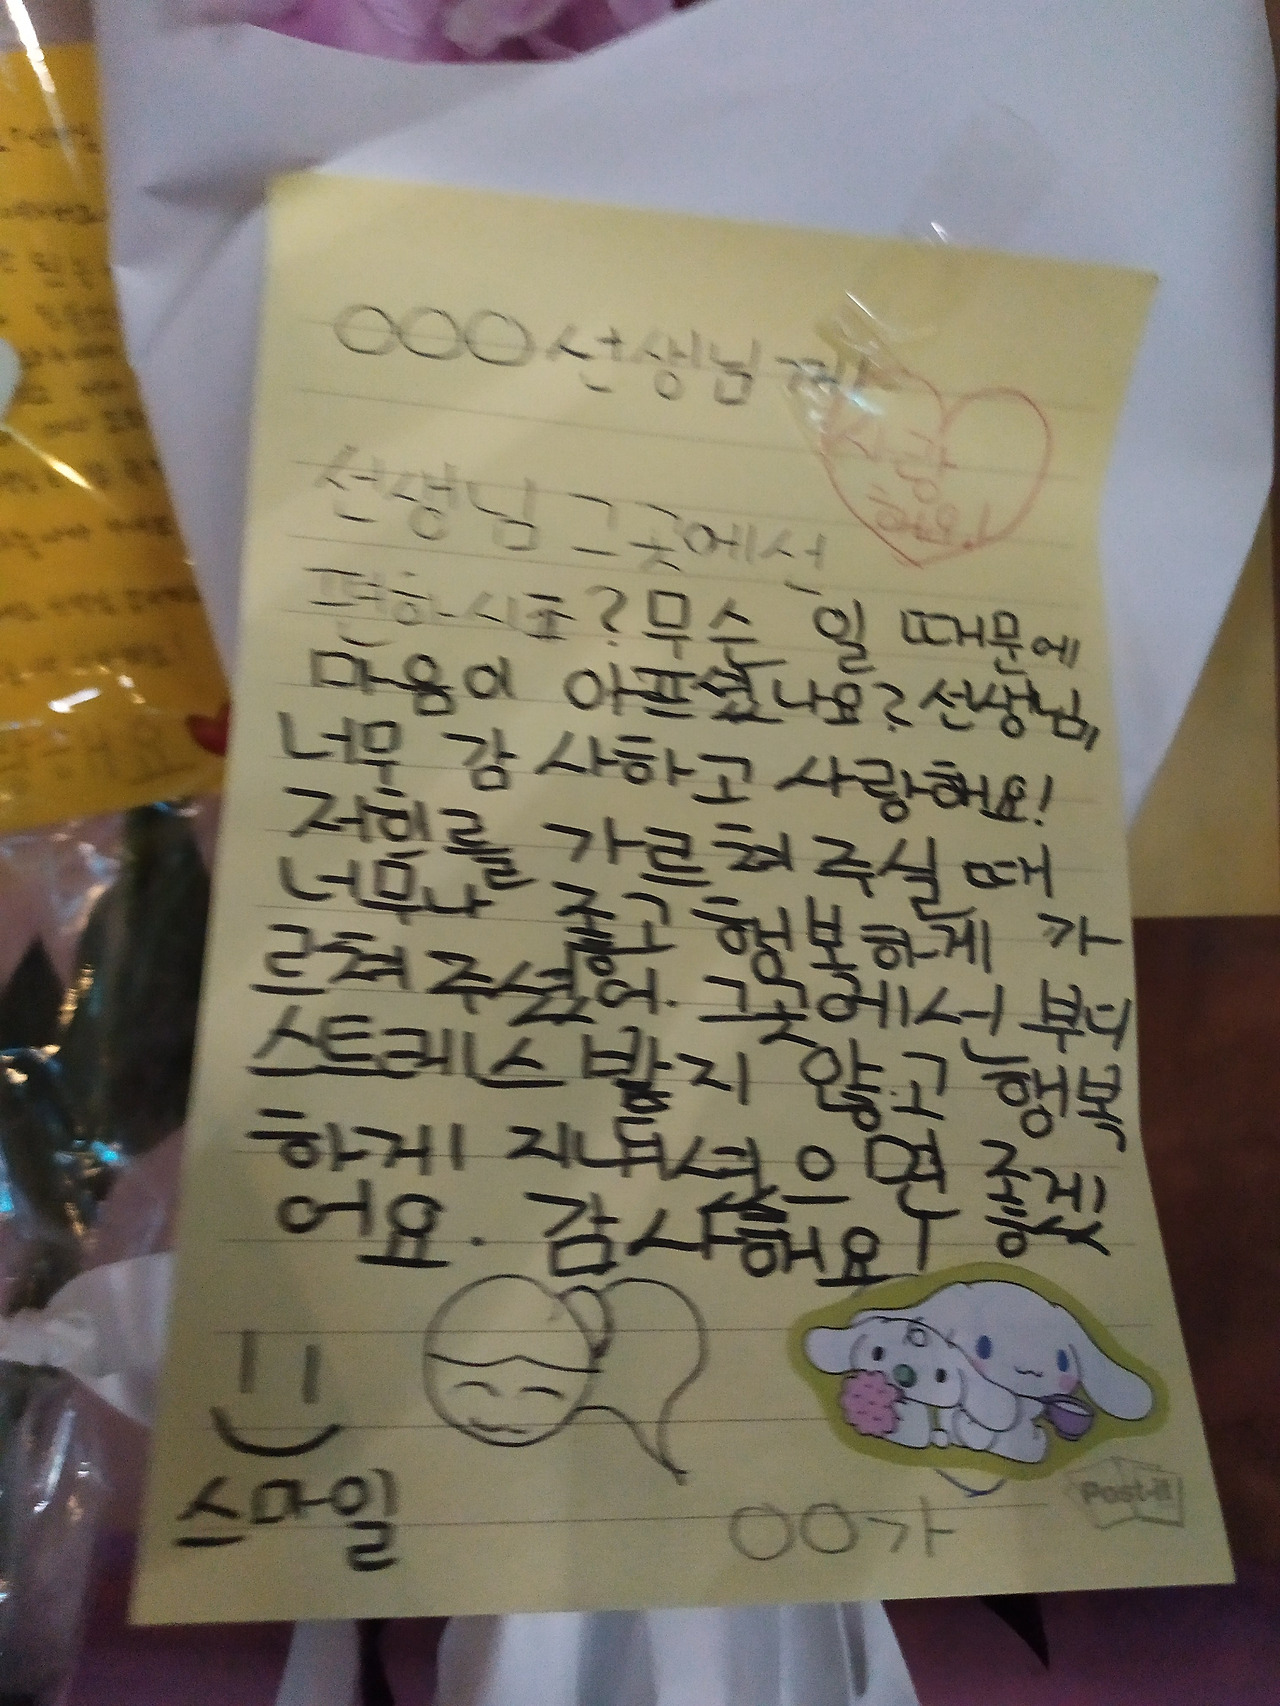 ○○○선생님께
사랑
해요!
선생님 그곳에선
편하시죠? 무슨 일 때문에
마음이 아프셨나요? 선생님,
너무 감사하고 사랑해요!
저희를 가르쳐 주실 때
너무나 좋고 행복하게 가
르쳐 주셨어. 그곳에선 부디
스트레스 받지 않고 행복
하게 지내셨으면 좋겠
어요. 감사해요!
스마일
○○가
Post-it